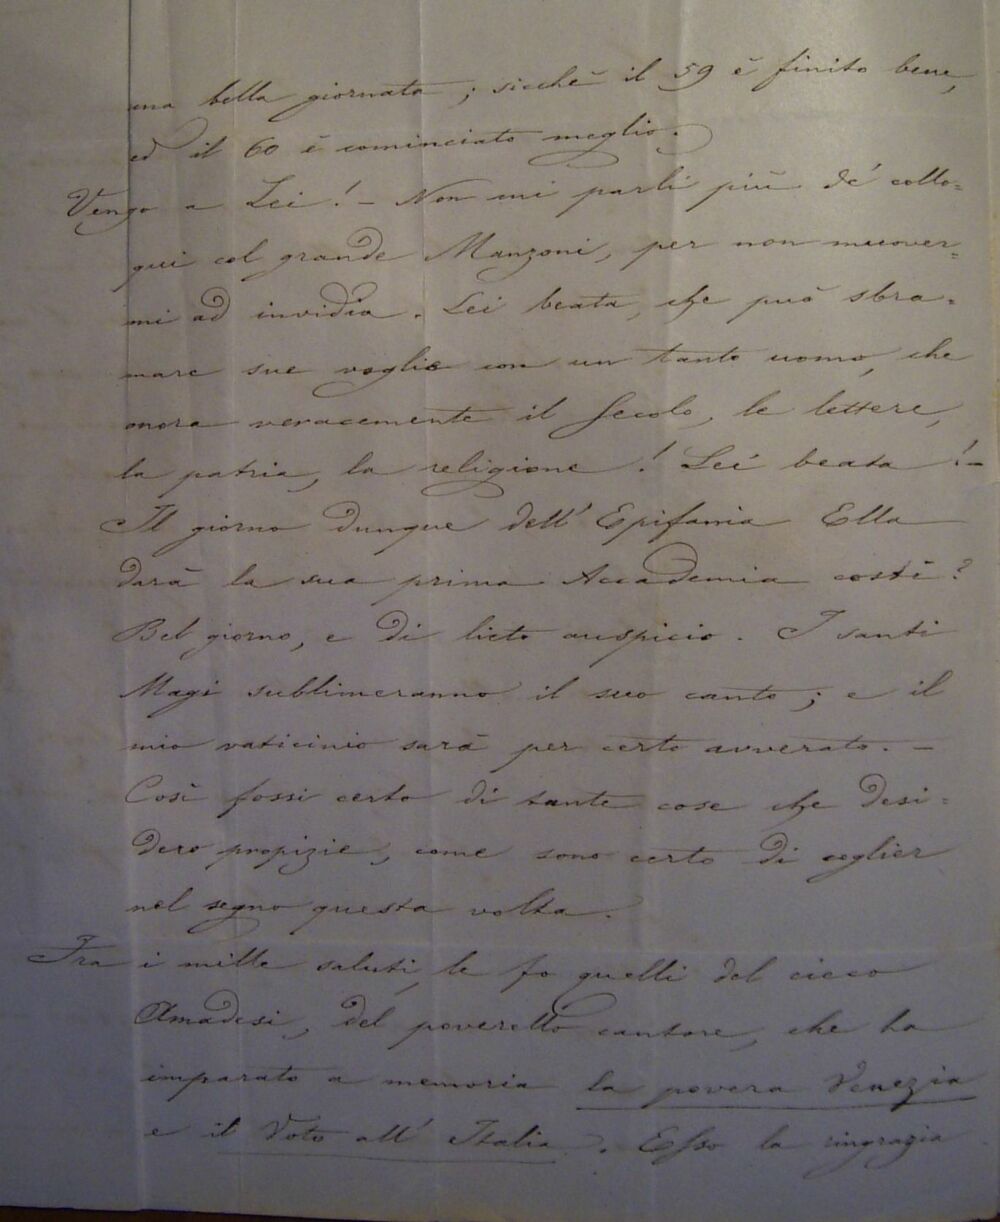 una bella giornata; sicchè il 59 è finito bene,
ed il 60 è cominciato meglio.
Vengo a Lei! - Non mi parli più de' collo=
qui col grande Manzoni, per non muover=
mi ad invidia. Lei beata, che può sbra=
mare sue voglie con un tanto uomo, che
onora veracemente il Secolo, le lettere,
la patria, la religione! Lei beata! -
Il giorno dunque dell' Epifania Ella
darà la sua prima Accademia costì?
Bel giorno, e di lieto auspicio. I santi
Magi sublimeranno il suo canto; e il
mio vaticinio sarà per certo avverato. -
Così fossi certo di tante cose che desi=
dero propizie, come sono certo di coglier
nel segno questa volta.
Fra i mille saluti, le fo quelli del cieco
Amadesi, del poveretto cantore, che ha
imparato a memoria la povera Venezia
e il Voto all' Italia. Esso la ringrazia